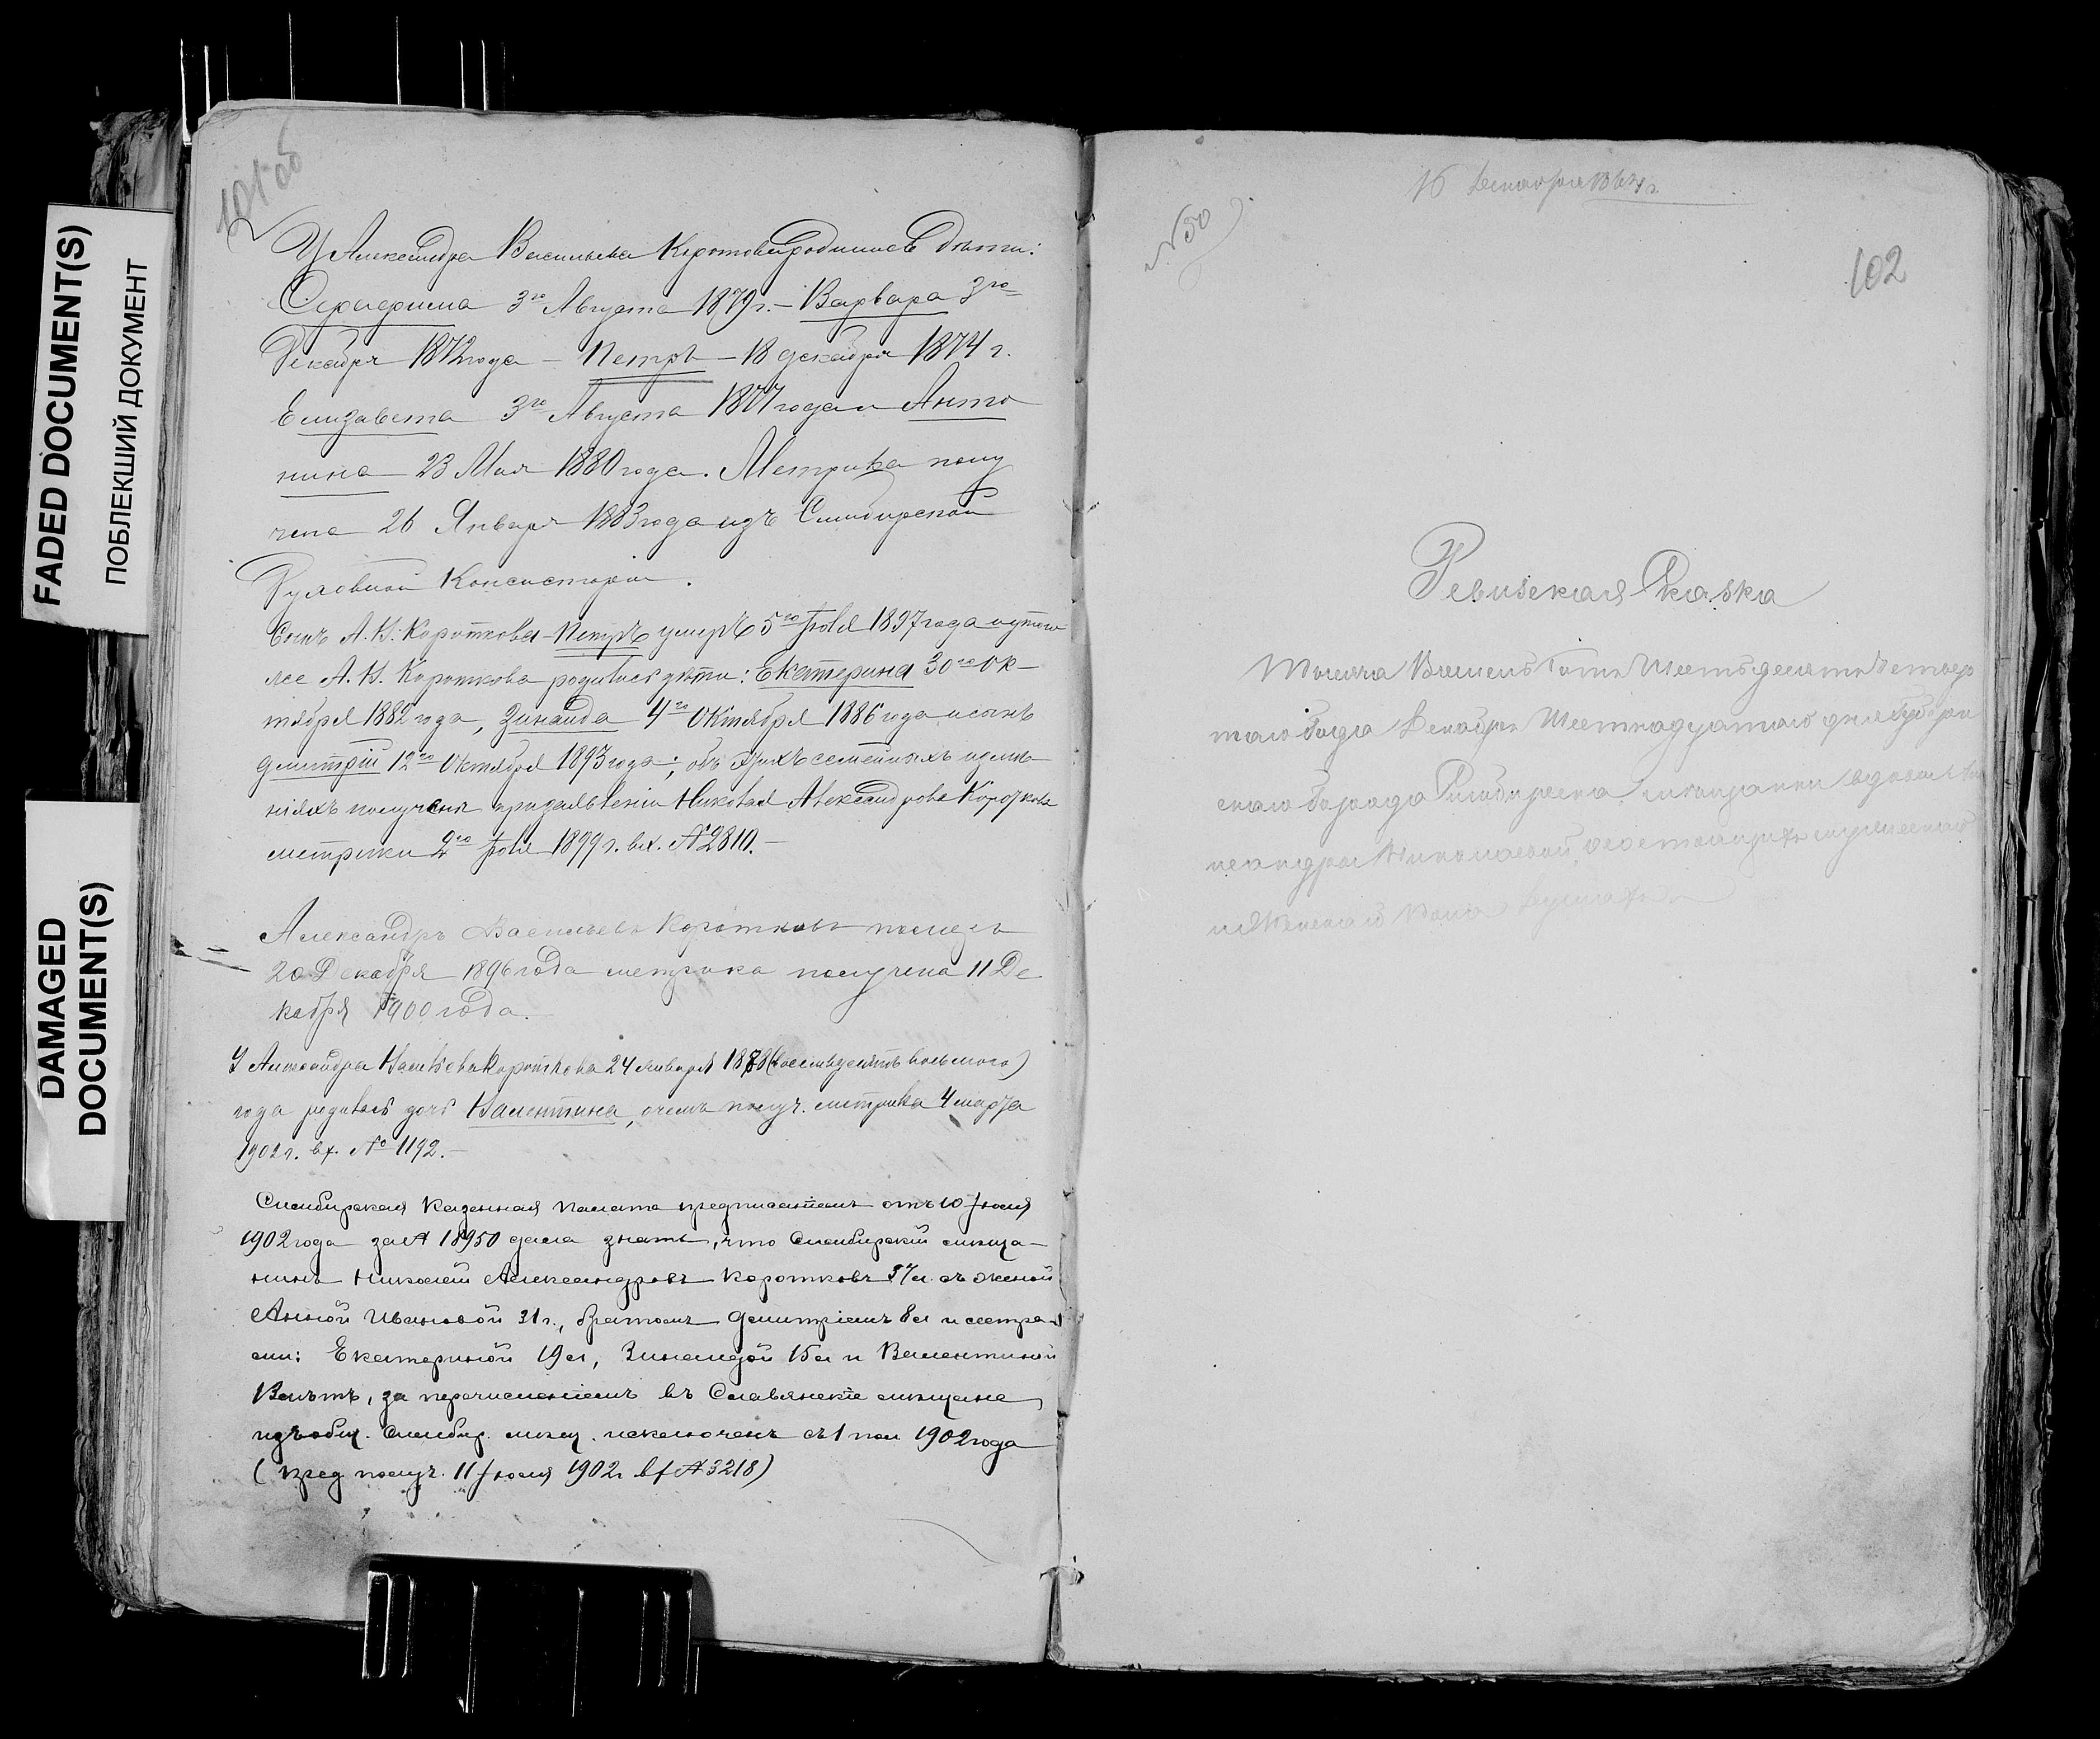 FADED DOCUMENT(S)
ПОБЛЕКШИЙ ДОКУМЕНТ
DAMAGED
DOCUMENT(S)
101 об
У Александра Васильева Короткова родились дѣти:
3го Августа 1879 г. – Варвара 3го
Декабря 1872 года – Петръ – 18 декабря 1874 г.
Елизавета 3го Августа 1877 года и Анто
нина 23 Мая 1880 года. Метрика полу
чена 26 Января 1883 года изъ Симбирской
Духовной Консисторіи.
Сынъ А. В. Короткова Петръ умеръ 5го Іюля 1897 года
А. В. Короткова родились дѣти: Екатерина 30го Ок-
тября 1882 года, Зинаида 4го Октября 1886 года и сынъ
Дмитрій 12го Октября 1893 года; объ семейныхъ
получены Николая Александрова Короткова
метрики 2го Іюля 1899 г. вх. № 2810. –
Александръ Васильевъ Коротковъ
20 Декабря 1896 года метрика получена 11 Де
кабря 1900 года. –
У Александра Васильева Короткова 24 января 1888 (восемьдесятъ восьмого)
года родилась дочь Валентина, о чемъ получ. метрика 4 марта
1902 г. вх. № 1192. –
Симбирская Казенная Палата предписаніемъ отъ 10 Іюля
1902 года за № 18950 дала знать, что Симбирскій мѣща-
нинъ Николай Александровъ Коротковъ 37 л. съ женой
Анной Ивановой 31 г., братомъ Дмитріемъ 8 л и сестра-
ми: Екатериной 19 л, Зинаидой 15 л и Валентиной
лѣтъ, за перечисленіемъ въ Славянскіе мѣщане
изъ общ. Симбир. мѣщ. исключенъ съ 1 пол 1902 года
(пред получ. 11 Іюля 1902 г вх № 3218)
16 Декабря 1864 г.
№ 50
102
Ревизская Сказка
Тысяча Восемьсотъ Шестьдесятъ Четвер
таго Года Декабря Шестнадцатаго дня Губерн
скаго Города Симбирска
Николаевой, о состоящихъ мужескаго
и Женскаго Пола Душахъ